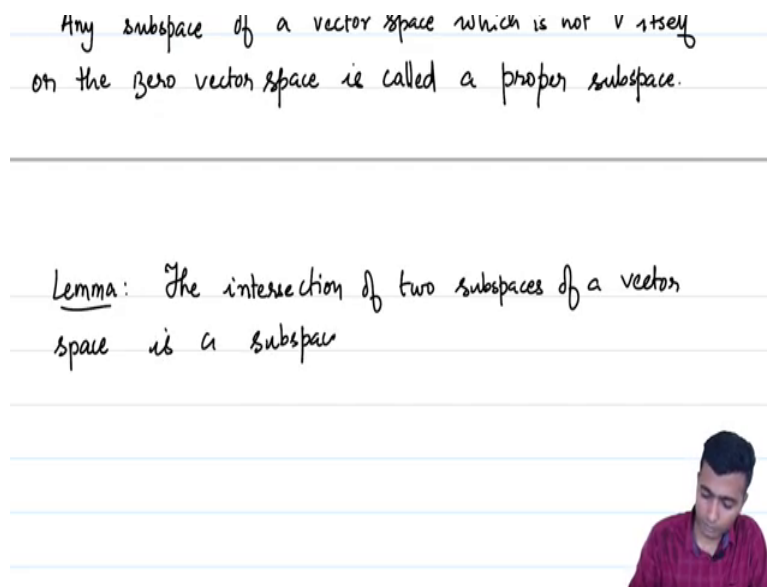 Any subspace of a vector space which is not V itself
or the zero vector space is called a proper subspace.
Lemma: The intersection of two subspaces of a vector
space is a subspac